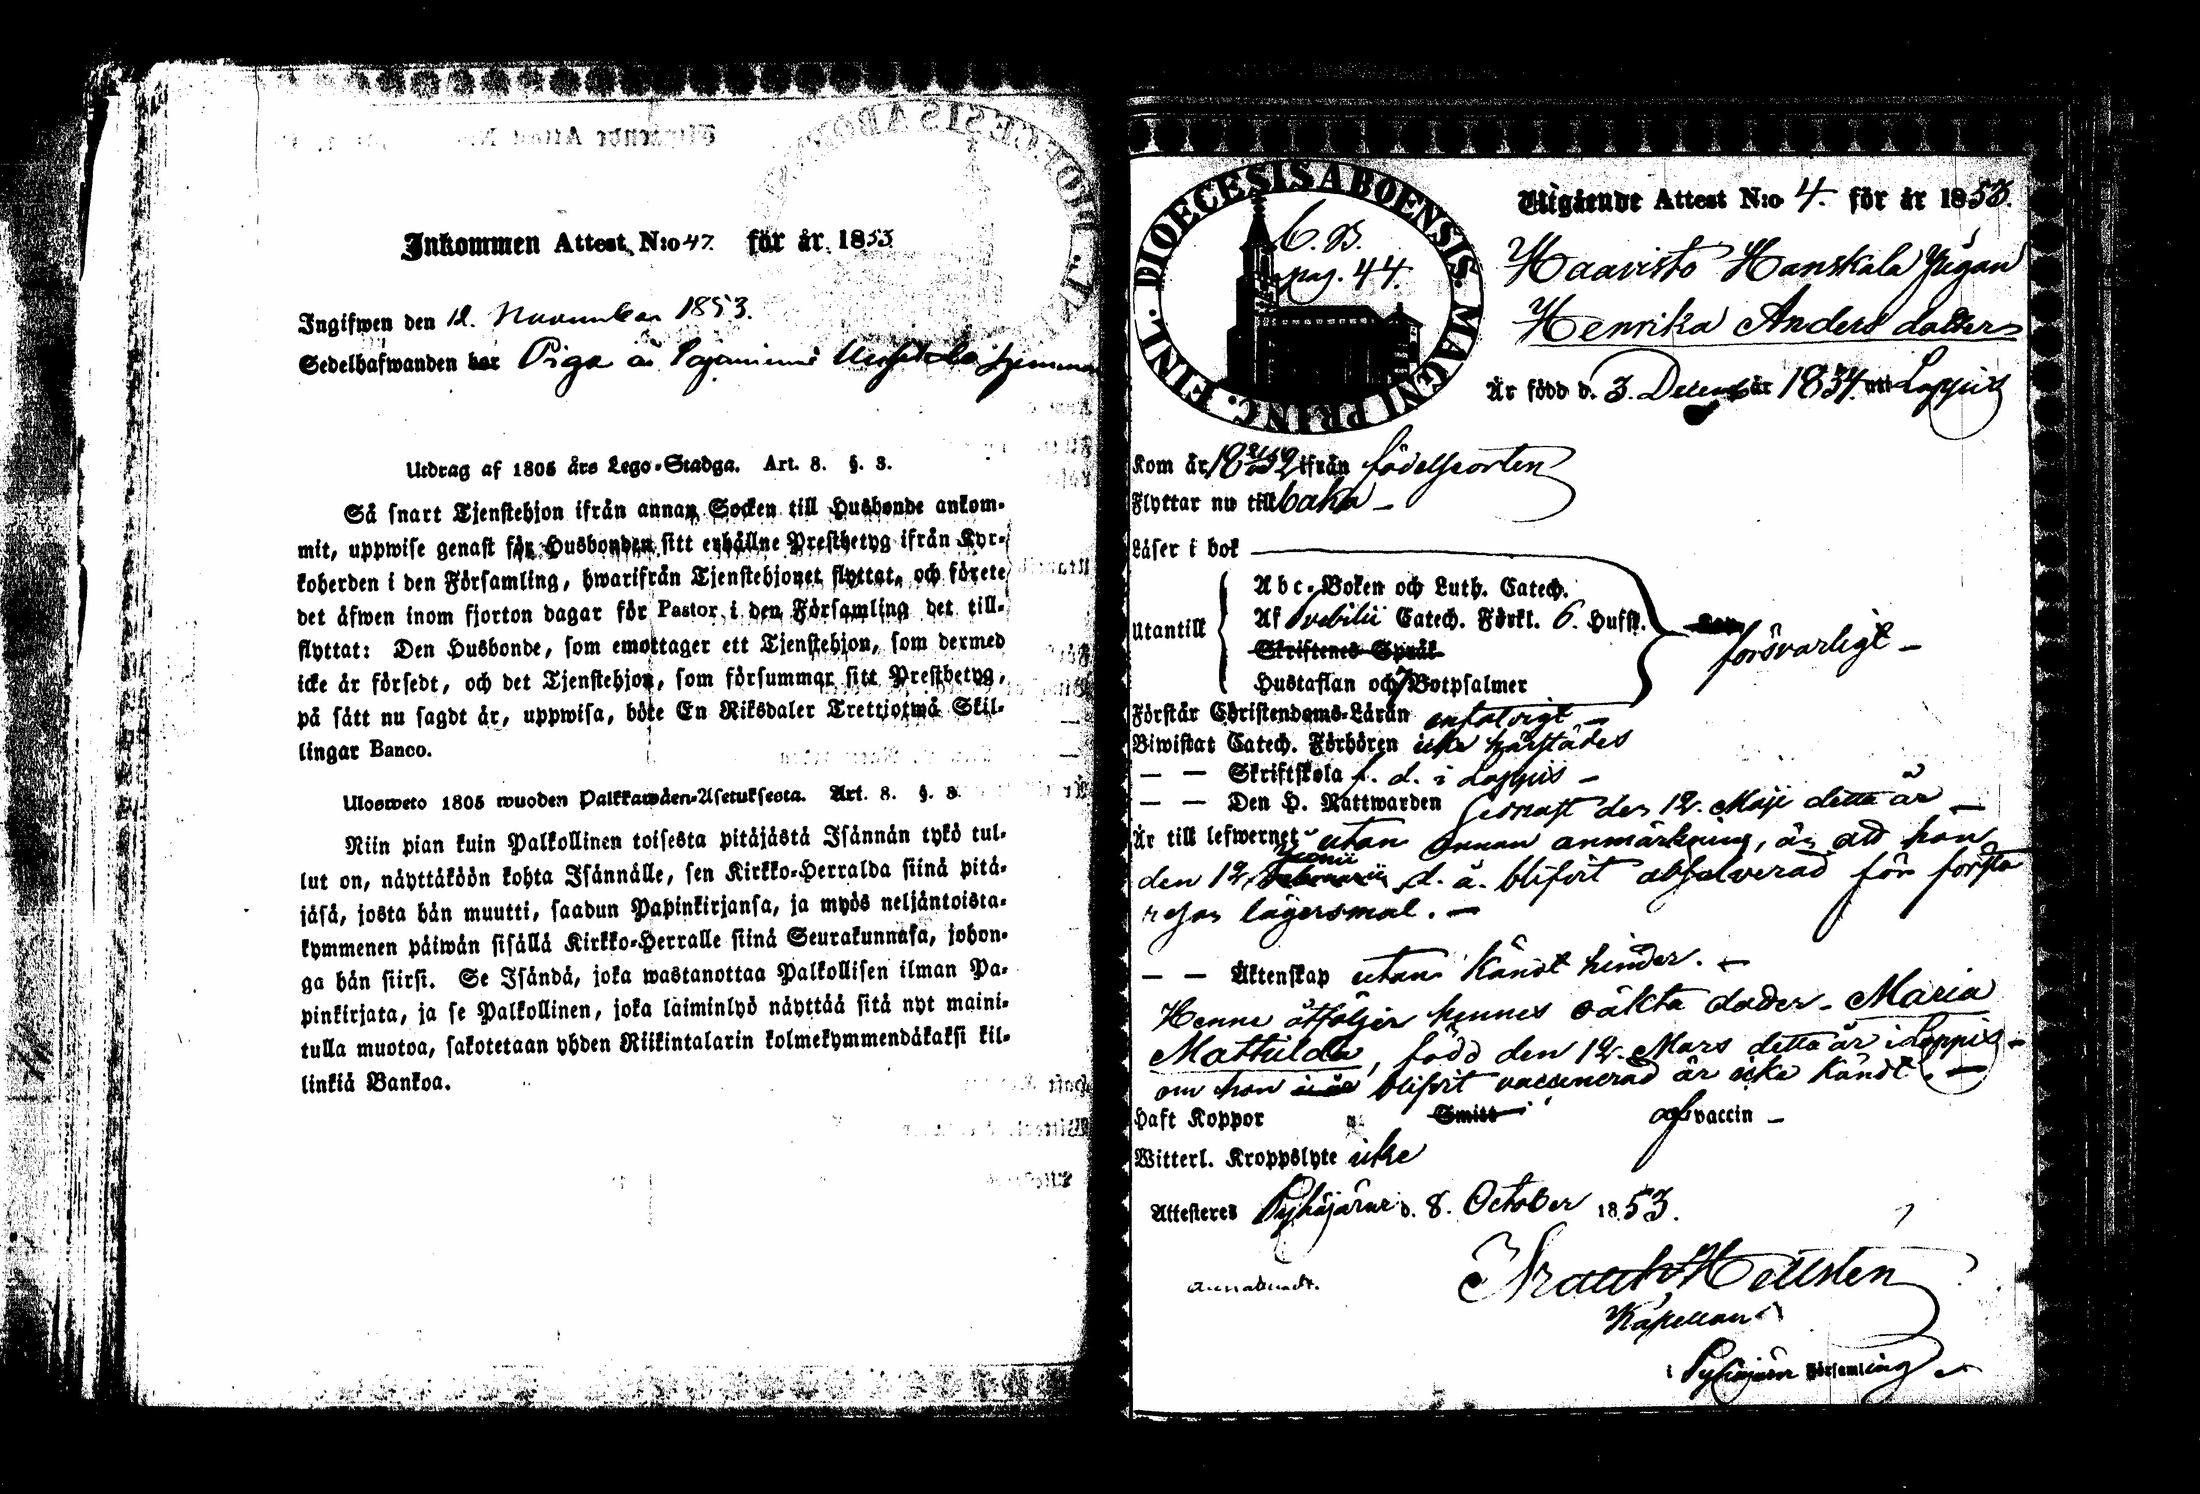 Inkommen Attest N:o 47. för år 1853
Ingifwen den 12. November 1853.
Sedelhafwanden har Piga å
Utdrag af 1805 års Lego-Stadga. Art. 8. §. 3.
Så snart Tjenstehjon ifrån annan Socken till Husbonde ankom-
mit, uppwise genast för Husbonden sitt erhållne Prestbetyg ifrån Kyr-
koherden i den Församling, hwarifrån Tjenstehjonet flyttat, och förete
det äfwen inom fjorton dagar för Pastor i den Församling det till-
flyttat: Den Husbonde, som emottager ett Tjenstehjon, som dermed
icke är försedt, och det Tjenstehjon, som försummar sitt Prestbetyg,
på sätt nu sagdt är, uppwisa, böte En Riksdaler Trettiotwå Skil-
lingar Banco.
Ulosweto 1805 wuoden Palkkawäen-Asetuksesta. Art. 8. §. 3.
Niin pian kuin Palkollinen toisesta pitäjästä Isännän tykö tul-
lut on, näyttäköön kohta Isännälle, sen Kirkko-Herralda siinä pitä-
jäsä, josta hän muutti, saadun Papinkirjansa, ja myös neljäntoista-
kymmenen päiwän sisällä Kirkko-Herralle siinä Seurakunnasa, johon-
ga hän siirsi. Se Isändä, joka wastanottaa Palkollisen ilman Pa-
pinkirjata, ja se Palkollinen, joka laiminlyö näyttää sitä nyt maini-
tulla muotoa, sakotetaan yhden Riikintalarin kolmekymmendäkaksi kil-
linkiä Bankoa.
DIOECESIS ABOENSIS. MAGNI PRINC. FINL.
C. B.
pag. 44.
Utgående Attest N:o 4. för år 1853.
Haavisto Hanskala Pigan
Henrika Anders dotter
Är född d. 3. Decemb är 1834. uti Loppis
Kom år 1852 ifrån födelseorten
Flyttar nu tillbaka –
Läser i bok
Utantill
Abc-Boken och Luth. Catech.
Af Svebilii Catech. Förkl. 6. Hufst.
Skriftenes Språk
Hustaflan och 7 Botpsalmer
försvarligt –
Förstår Christendoms-Läran enfaldigt –
Biwistat Catech. Förhören icke härstädes
— — Skriftskola f. d. i Loppis –
— — Den H. Nattwarden senast den 12. Maji detta år –
Är till lefwernet utan annan anmärkning, än att hon
Junii
den 12. Februarii d. å. blifvit absolverad för första
resan lägersmål. –
— — Äktenskap utan kändt hinder. –
Henne åtföljer hennes oäkta dotter – Maria
Mathilda, född den 12. Mars detta år i Loppis –
om hon blifvit vaccinerad är icke kändt. –
Haft Koppor Smitt af vaccin –
Witterl. Kroppslyte icke
Attesteres Pyhäjärvi d. 8. October 1853.
Hellstén
Kapellan
i Pyhäjärvi Församling